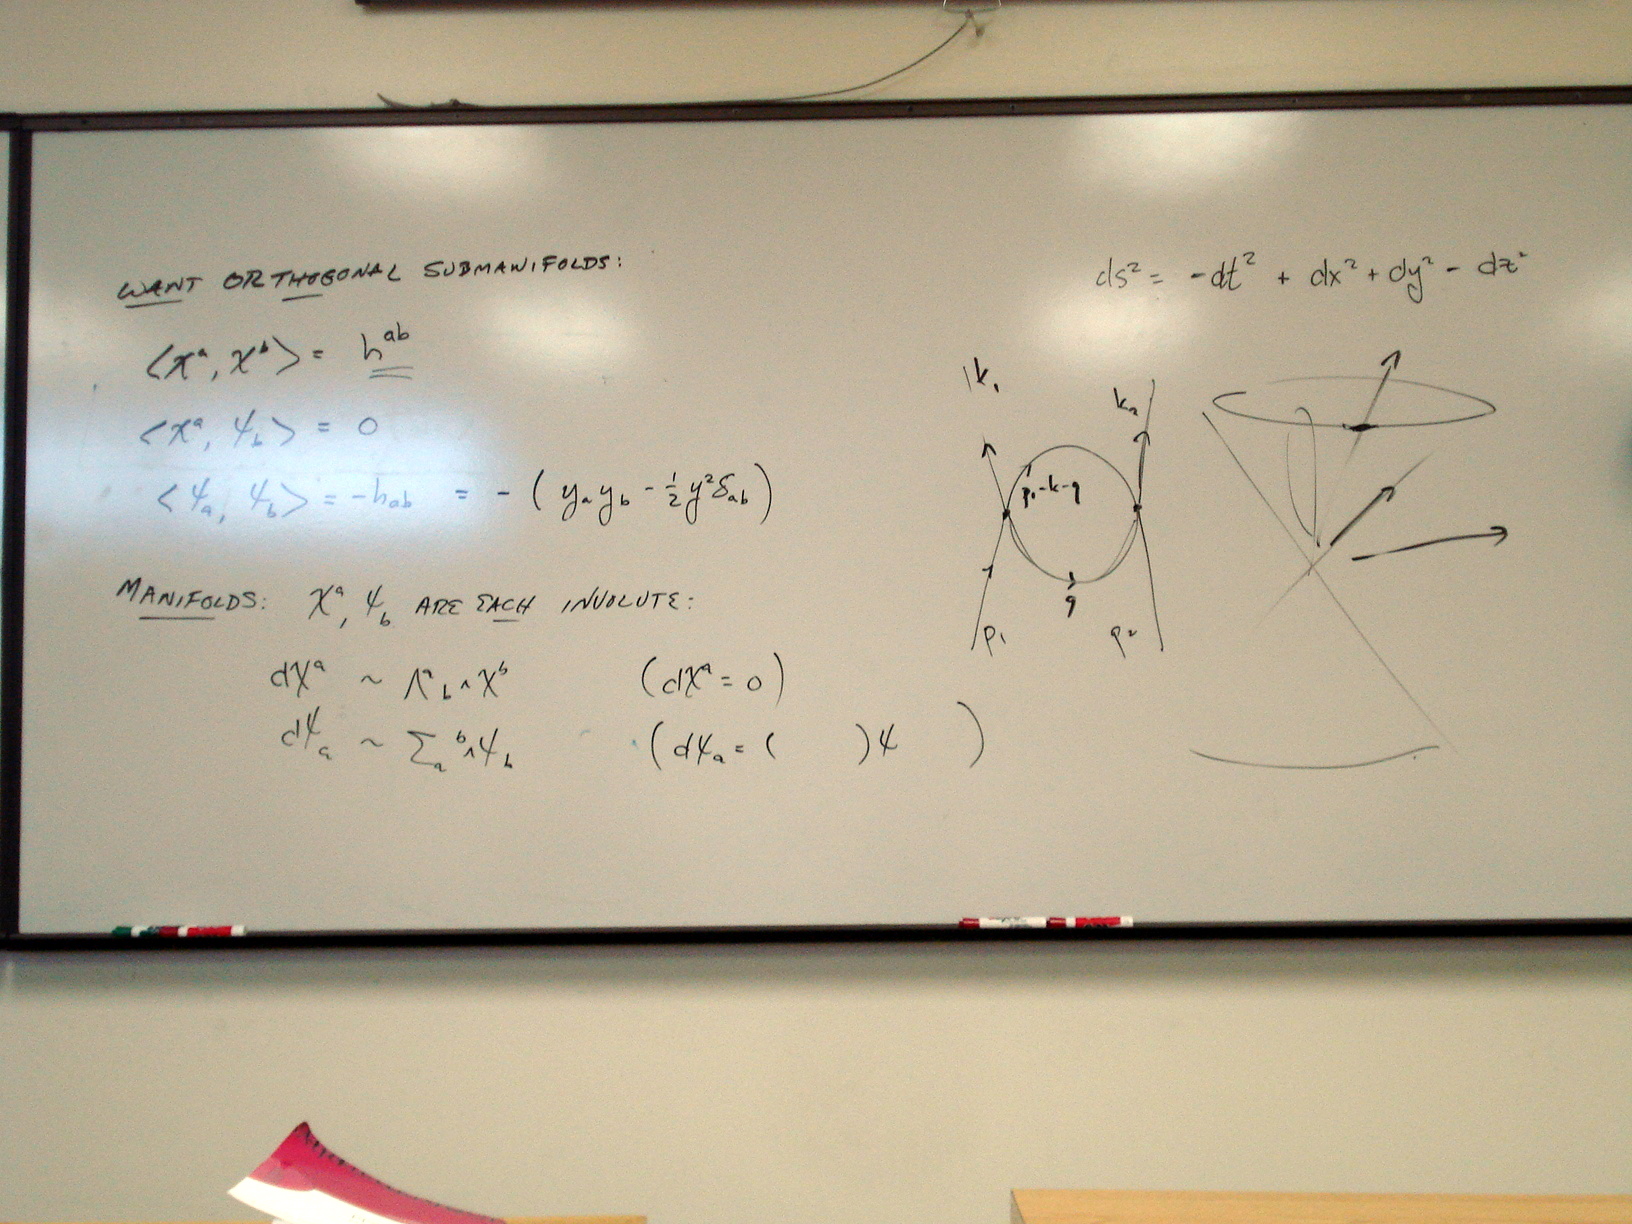 WANT ORTHOGONAL SUBMANIFOLDS:
⟨χᵃ, χᵇ⟩ = hᵃᵇ
⟨χᵃ, ψ_b⟩ = 0
⟨ψ_a, ψ_b⟩ = -h_ab = - (y_a y_b - ½ y² δ_ab)
MANIFOLDS: χᵃ, ψ_b ARE EACH INVOLUTE:
dχᵃ ~ Λᵃ_b ∧ χᵇ (dχᵃ = 0)
dψ_a ~ Σ_a ᵇ ∧ ψ_b (dψ_a = ( )ψ )
ds² = -dt² + dx² + dy² - dz²
k₁
k₂
p₁-k-q
q
p₁
p₂